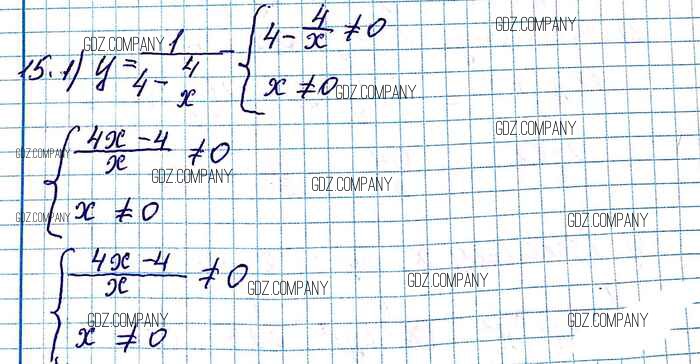 15. 1) y = 1 / (4 - 4/x) { 4 - 4/x ≠ 0
x ≠ 0
{ (4x - 4)/x ≠ 0
x ≠ 0
{ (4x - 4)/x ≠ 0
x ≠ 0
GDZ.COMPANY
GDZ.COMPANY
GDZ.COMPANY
GDZ.COMPANY
GDZ.COMPANY
GDZ.COMPANY
GDZ.COMPANY
GDZ.COMPANY
GDZ.COMPANY
GDZ.COMPANY
GDZ.COMPANY
GDZ.COMPANY
GDZ.COMPANY